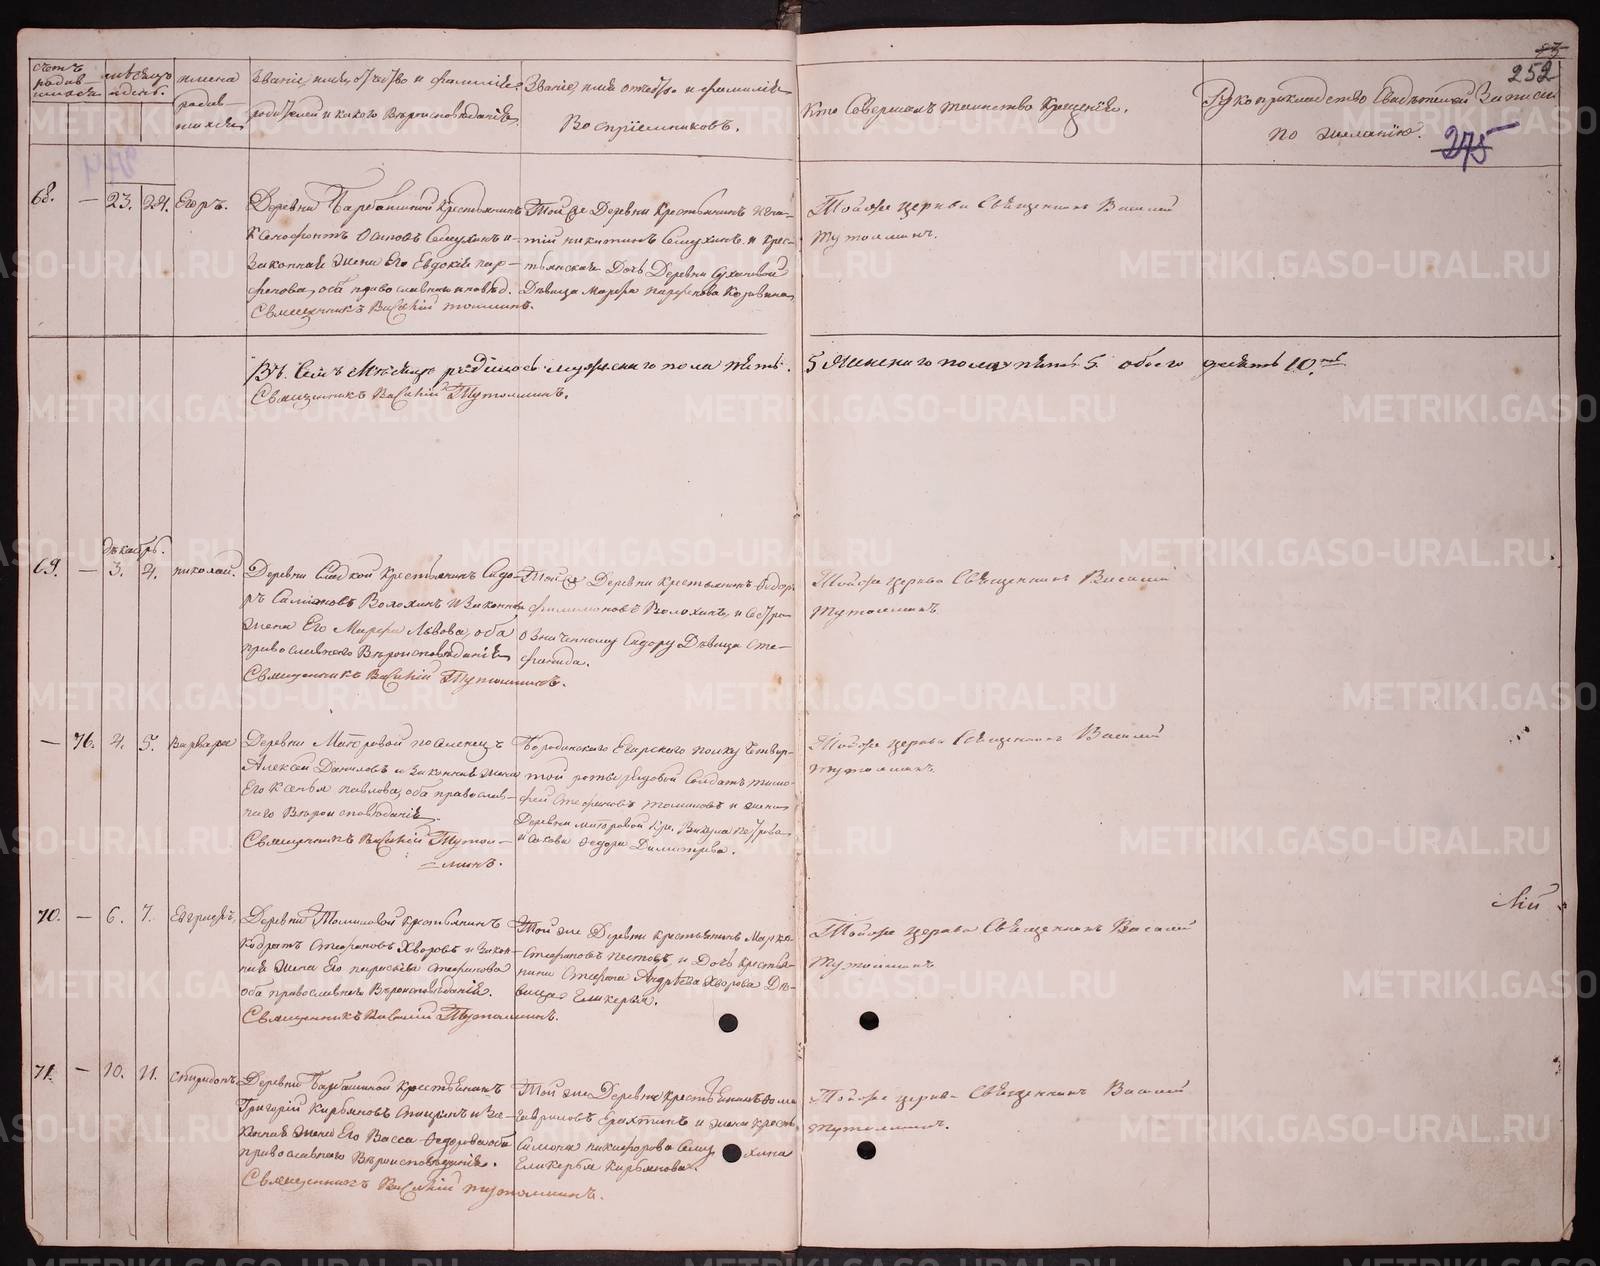 счетъ родившихся
мѣсяцъ и день.
имена родившихся
Званіе, имя, отчество и фамилія родителей и какого вѣроисповѣданія
Званіе, имя отчество и фамилія Воспріемниковъ.
Кто Совершалъ таинство Крещенія.
Рукоприкладство Свидѣтелей Записи по желанію.
252
275
68. — 23. 24. Егоръ.
Деревни Барабашиной Крестьянинъ
Ксенофонтъ Осиповъ Семухинъ и
законная жена Его Евдокія пар-
фенова, оба православнаго исповѣд.
Священникъ Василій
Той же Деревни Крестьянинъ Игна-
тій никитинъ Семухинъ и крес-
тьянская Дочь Деревни
Дѣвица Марфа парфенова
Тойже церкви Священникъ Василій
Тутолминъ.
Въ Семъ Мѣсяце родилось мужескаго пола пять. 5 Женскаго пола пять 5. обоего десять 10.
Священникъ Василій Тутолминъ.
декабрь.
69. — 3. 4. николай.
Деревни Сладкой Крестьянинъ Сидо-
ръ Волохинъ и Законная
жена Его Марфа Львова, оба
православнаго Вѣроисповѣданія
Священникъ Василій Тутолминъ.
Той же Деревни крестьянинъ Федоръ
филимоновъ Волохинъ, и сестра
означенному Сидору Дѣвица Сте-
фанида.
Тойже церкви Священникъ Василій
Тутолминъ
— 76. 4. 5. Варвара
Деревни Макаровой поселенецъ
Алексей Даниловъ и Законная жена
Его Ксенья павлова, оба православ-
наго Вѣроисповѣданія.
Священникъ Василій Тутол-
минъ.
Бородинскаго Егарскаго полку четвер-
той роты рядовой Солдатъ тимо-
фей Стефановъ и жена
Деревни Кре. Викула петрова
Федора Димитрева.
Тойже церкви Священникъ Василій
Тутолминъ
70. — 6. 7.
Деревни Томиловой Крестьянинъ
Кодратъ Стефановъ Хворовъ и закон-
ная жена Его параскева Стефанова
оба православнаго Вѣроисповѣданія.
Священникъ Василій Тутолминъ.
Той же Деревни Крестьянинъ Марка
Стефановъ пестовъ и Дочь крестья-
нина Стефана Андрѣева Хворова Дѣ-
вица Гликерья.
Тойже церкви Священникъ Василій
Тутолминъ
лій
71. — 10. 11. Спиридонъ
Деревни Барабашиной Крестьянинъ
Григорій Кирьяновъ Спицинъ и за-
конная жена Его Васса Федорова оба
православнаго Вѣроисповѣданія.
Священникъ Василій тутолминъ.
Той же Деревни крестьянинъ фома
гавриловъ Ерахтинъ и жена Кресть.
Симона никифорова Сему хина
Гликерья Кирьянова.
Тойже церкви Священникъ Василій
Тутолминъ.
METRIKI.GASO-URAL.RU